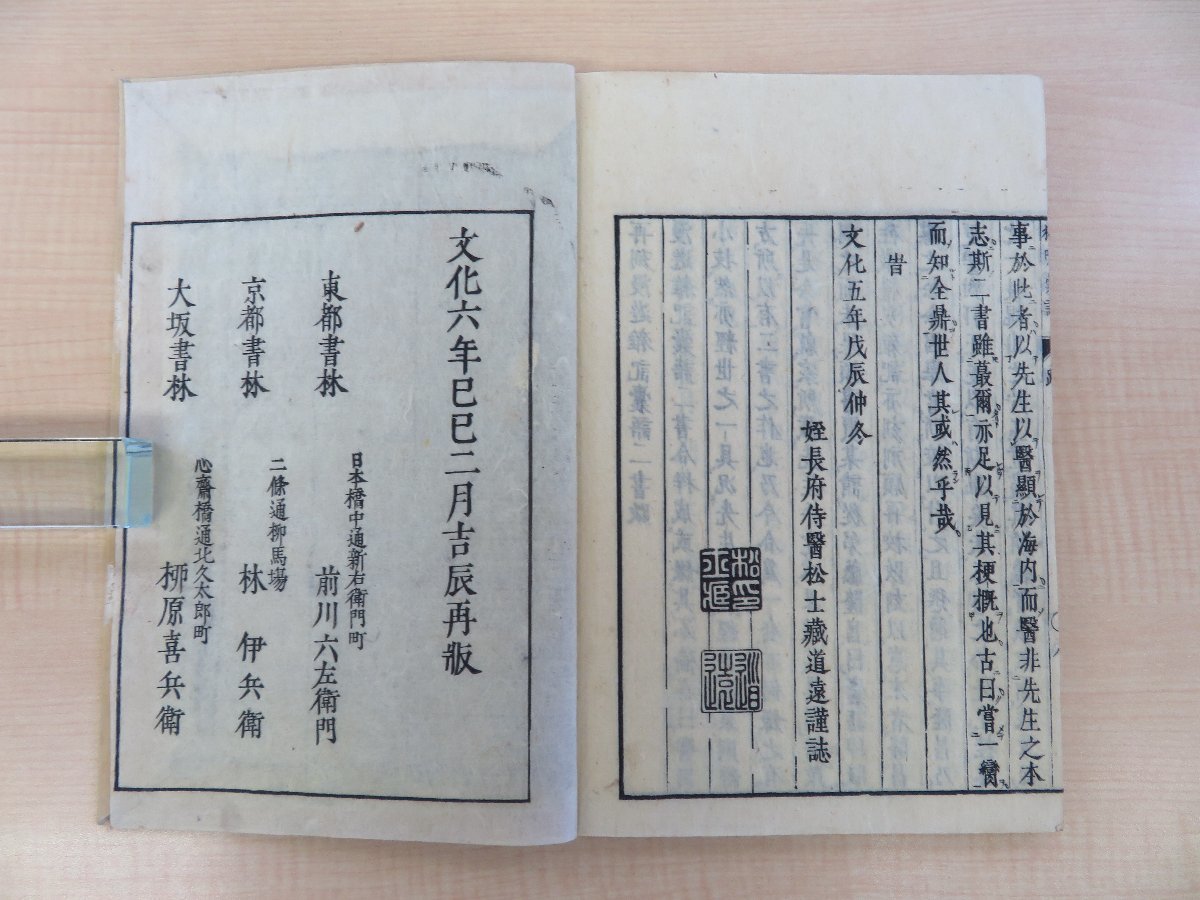 事於此者以先生以醫顯於海内而醫非先生之本
志斯二書雖蕞爾亦足以見其梗概也古曰嘗一臠
而知全鼎世人其或然乎哉
旹
文化五年戊辰仲冬
姪長府侍醫松士藏道遠謹誌
道遠
文化六年己巳二月吉辰再版
東都書林 日本橋中通新右衛門町 前川六左衛門
京都書林 二條通柳馬場 林伊兵衛
大坂書林 心齋橋通北久太郎町 柳原喜兵衛